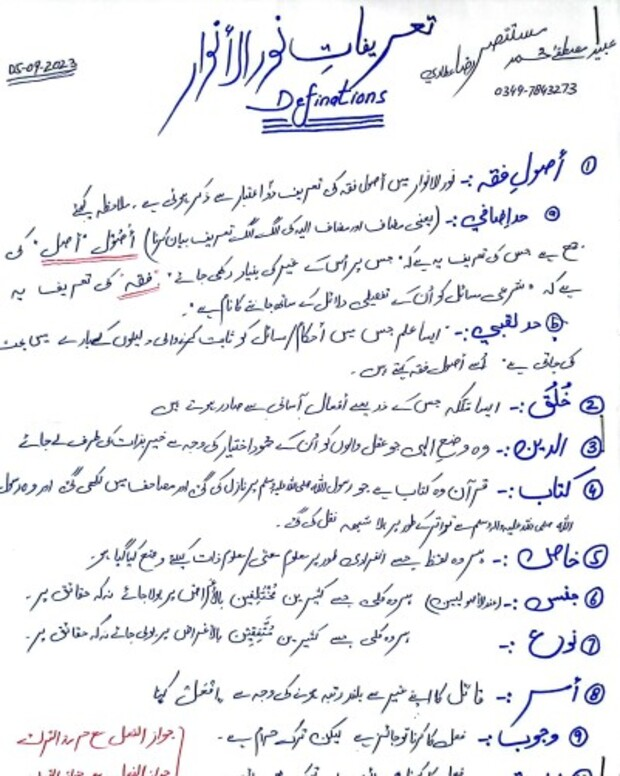 تعریفاتِ نور الأنوار
Definations
05-09-2023
مستنصر
0349-7843273
① اُصولِ فقہ :- نور الانوار میں اصول فقہ کی تعریف دو اعتبار سے ذکر ہوئی ہے ۔ ملاحظہ کیجئے
ⓐ حد اضافي :- (یعنی مضاف اور مضاف الیہ کی الگ الگ تعریف بیان کرنا) اُصُوْل "اصل" کی
جمع ہے جس کی تعریف یہ ہے کہ "جس پر اُس کے غیر کی بنیاد رکھی جائے" ۔ "فقہ" کی تعریف یہ
ہے کہ "شرعی مسائل کو اُن کے تفصیلی دلائل کے ساتھ جاننے کا نام ہے" ۔
ⓑ حد لقبي :- ایسا علم جس میں احکام/مسائل کو ثابت کرنے والی دلیلوں کے بارے میں بحث
کی جاتی ہے" اُسے اصول فقہ کہتے ہیں ۔
② خُلُق :- ایسا ملکہ جس کے ذریعے افعال آسانی سے صادر ہوتے ہیں
③ الدین :- وہ وضعِ الٰہی جو عقل والوں کو اُن کے اختیار کی وجہ سے خیر بذات کی طرف لے جائے
④ کتاب :- قرآن وہ کتاب ہے جو رسول اللہ صلی اللہ علیہ وسلم پر نازل کی گئی اور مصاحف میں لکھی گئی اور وہ رسول
اللہ صلی اللہ علیہ والہ وسلم سے تواتر کے طور پر بلا شبہہ نقل کی گئی ۔
⑤ خاص :- ہر وہ لفظ جسے انفرادی طور پر معلوم معنی/معلوم ذات کیلئے وضع کیا گیا ہو ۔
⑥ جنس :- (عند الأصولیین) ہر وہ کلی جسے کثیرین مُخْتَلِفِین بالأغراض پر بولا جائے نہ کہ حقائق پر ۔
⑦ نوع :- ہر وہ کلی جسے کثیرین مُتَّفِقِیْن بالاغراض پر بولی جائے نہ کہ حقائق پر ۔
⑧ أمر :- قائل کا اپنے غیر سے بلند رتبہ ہونے کی وجہ سے افعل کہنا
⑨ وجوب :- فعل کا کرنا تو جائز ہے لیکن ترک حرام ہے ۔
جواز الفعل مع حرمة الترك